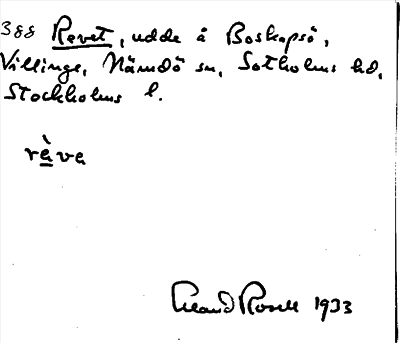 388 Revet, udde å Boskapsö,
Villinge, Nämdö sn, Sotholms hd,
Stockholms l.
ràva
Rosell 1933